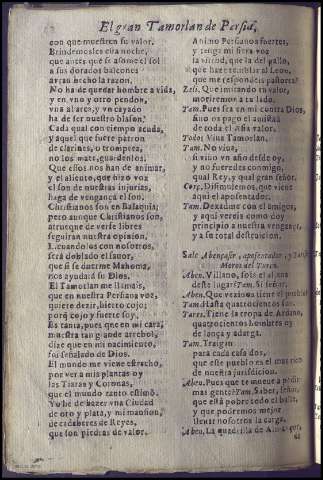 El gran Tamorlan de Persia,
con que muestren su valor.
Brindemosles esta noche,
que antes que se asome el sol
a sus dorados balcones
No ha de quedar hombre a vida,
y en vno y otro pendon,
ha de ser nuestro blason.
Cada qual con tiempo acuda,
y aquel que fuere patron
de clarines, o trompeta,
no los mate, guardenlos.
Que essos nos han de animar,
y el aliento, que hizo voz
el son de nuestras injurias,
haga de vengança el son.
Christianos son en Balaquia;
pero aunque Christianos son,
a trueque de verse libres
seguiran nuestra opinion.
con nosotros,
será doblado el fauor,
que si se durme Mahoma,
nos ayudará su Dios.
El Tamorlan me llamais,
que en nuestra Persiana voz,
quiere dezir, hierro cojo;
porq cojo y fuerte soy,
Es tanta, pues que en mi cara,
muestra tan grande arrebol,
dize que en mi nacimiento,
foi señalado de Dios.
El mundo me viene estrecho,
por ver a mis plantas oy
las Tiaras y Coronas,
que el mundo tanto estimó.
Yo he de hazer vna Ciudad
de oro y plata, y mi mansion,
de cadaberes de Reyes,
que son piedras de valor.
Animo Persianos fuertes,
y tenga mi fiera voz
la virtud, que la del gallo,
que haze temblar al Leon,
que me respondeis pastores?
Zeis. Que imitando tu valor,
moriremos a tu lado.
Tam. Pues sera en mi contra Dios,
sino os pago el animsa
de toda el Asia valor.
Todos Viua Tamorlan.
Tam. No viua,
si viuo vn año desde oy,
y no fueredes commigo,
qual Rey, y qual gran señor.
Cor. Dissimulemos, que viene
aqui el aposentador.
Tam. Dexadme con el amigos,
y aqui vereis como doy
principio a nuestra vengança,
y a su total destruicion.
Sale Abençafir, aposentador, y
Moros del Turco.
Aben. Villano, sois el al
deste lugar? Tam. Si señor.
Aben. Que vezinos tiene el pueblo?
Tam. Hasta quatrocientos son.
Tarif. Tiene la tropa de Ardano,
quatrocientos hombres oy
de lança y adarga.
Tam. Traigan
para cada casa dos,
que este pueblo es el mas rico
de nuestra jurisdicion.
Aben. Pues que te mueue a pedir
mas gente? Tam. Saber, señor,
que está pobre todo el balle,
y que podremos mejor
llenar nosotros la carga.
Aben. La quadrilla de